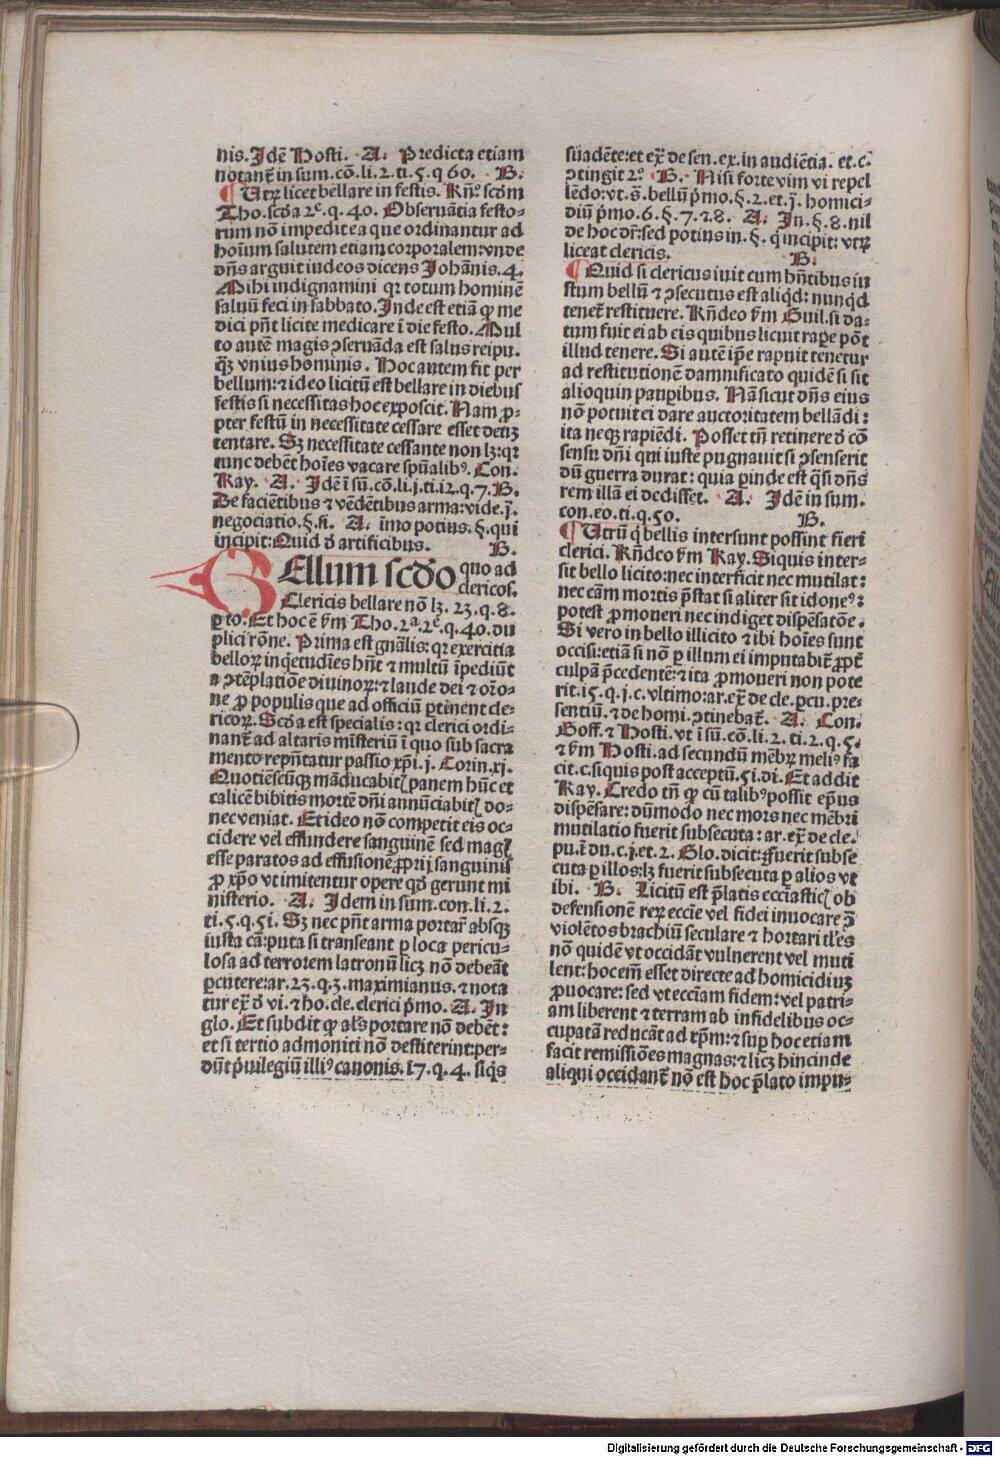 nis. Jdē Hosti. A. Predicta etiam
notant̄ in sum. cō. li. 2. ti. 5. q 60. B.
¶ Utꝝ licet bellare in festis. Rn̄º scdm
Tho. scd̄a 2ᵉ. q. 40. Obseruātia festo⸗
rum nō impedit ea que ordinantur ad
hoīum salutem etiam corporalem: vnde
dn̄s arguit iudeos dicens Johānis. 4.
Mihi indignamini qꝛ totum hominē
saluū feci in sabbato. Jnde est etiā ꝙ me
dici pn̄t licite medicare ī die festo. Mul
to autē magis ꝯseruāda est salus reipu.
qꝫ vnius hominis. Hoc autem fit per
bellum: ⁊ ideo licitū est bellare in diebus
festis si necessitas hoc exposcit. Nam ꝓ⸗
pter festū in necessitate cessare esset deūꝫ
tentare. Sꝫ necessitate cessante non lꝫ: qꝛ
tunc debēt hoīes vacare spūalibꝰ. Con.
Ray. A. Jdē ī sū. cō. li. j. ti. 12. q. 7. B.
De faciētibus ⁊ vēdētibus arma: vide. j̄.
negociatio. §. fi. A. imo potius. §. qui
incipit: Quid ð artificibus. B.
BEllum scðo quo ad
clericos.
Clericis bellare nō lꝫ. 23. q. 8.
ꝑ to. Et hoc ē ẜm Tho. 2ª. 2ᵉ. q. 40. du
plici rōne. Prima est gn̄alis: qꝛ exercitia
belloꝝ inq̇etudīes hn̄t ⁊ multū īpediūt
a ꝯtēplatiōe diuinoꝝ: ⁊ laude dei ⁊ oꝛ̄o⸗
ne ꝓ populis que ad officiū ꝑtinent cle⸗
ricoꝝ. Scd̄a est specialis: qꝛ clerici ordi⸗
nant̄ ad altaris mīsteriū ī quo sub sacra
mento rep̄ntatur passio xp̄i. j. Corin. xj.
Quotiēscūqꝫ māducabitꝭ panem hūc et
calicē bibitis mortē dn̄i annūciabitꝭ do⸗
nec veniat. Et ideo nō competit eis oc⸗
cidere vel effundere sanguinē sed magꝭ
esse paratos ad effusionē ꝓprij sanguinis
ꝓ xp̄o vt imitentur opere qd̄ gerunt mi
nisterio. A. Jdem in sum. con. li. 2.
ti. 5. q. 51. Sꝫ nec pn̄t arma portar̄ absqꝫ
iusta cā: puta si transeant ꝑ loca pericu⸗
losa ad terrorem latronū licꝫ nō debeāt
ꝑcutere: ar. 23. q. 3. maximianus. ⁊ nota
tur ex̄ ð vi. ⁊ ho. cle. clerici p̄mo. A. Jn
glo. Et subdit ꝙ al̄s portare nō debēt:
et si tertio admoniti nō destiterint: per⸗
dūt p̄uilegiū illiꝰ canonis. 17. q. 4. siq̇s
suadēte: et ex̄ de sen. ex. in audiētia. et. c.
ꝯtingit 2º. B. Nisi forte vim vi repel
lēdo: vt. s̄. bellū p̄mo. §. 2. et. j̄. homici⸗
diū p̄mo. 6. §. 7. ⁊. 8. A. Jn. §. 8. nil
de hoc dr̄: sed potius in. §. q̇ incipit: vtꝝ
liceat clericis. B.
¶ Quid si clericus iuit cum hn̄tibus iu
stum bellū ⁊ ꝯsecutus est aliq̇d: nunqd̄
tenet̄ restituere. Rn̄deo ẜm Guil. si da⸗
tum fuit ei ab eis quibus licuit raꝑe pōt
illud tenere. Si autē ip̄e rapuit tenetur
ad restitutionē damnificato quidē si sit
alioquin pauꝑibus. Nā sicut dn̄s eius
nō potuit ei dare auctoritatem bellādi:
ita neqꝫ rapiēdi. Posset tn̄ retinere ð cō
sensu dn̄i qui iuste pugnauit si ꝯsenserit
dū guerra durat: quia ꝑinde est q̄si dn̄s
rem illā ei dedisset. A. Jdē in sum.
con. eo. ti. q. 50. B.
¶ Utrū q̇ bellis intersunt possint fieri
clerici. Rn̄deo ẜm Ray. Si quis inter⸗
sit bello licito: nec interficit nec mutilat:
nec cām mortis p̄stat si aliter sit idoneꝰ:
potest ꝓmoueri nec indiget dispēsatōe.
Si vero in bello illicito ⁊ ibi hoīes sunt
occisi: etiā si nō ꝑ illum ei imputabit̄ ꝓpt̄
culpā p̄cedentē: ⁊ ita ꝓmoueri non pote
rit. 15. q. j. c. vltimo: ar. ex̄ de cle. ꝑcu. pre⸗
sentiū. ⁊ de homi. ꝯtinebat̄. A. Con.
Goff. ⁊ Hosti. vt ī sū. cō. li. 2. ti. 2. q. 5.
⁊ ẜm Hosti. ad secundū mēbꝝ meliꝰ fa
cit. c. si quis post acceptū. 51. di. Et addit
Ray. Credo tn̄ ꝙ cū talibꝰ possit ep̄us
dispēsare: dūmodo nec mors nec mēbri
mutilatio fuerit subsecuta: ar. ex̄ de cle.
pu. ī du. c. j. et. 2. Glo. dicit: ꝙ fuerit subse
cuta ꝑ illos: lꝫ fuerit subsecuta ꝑ alios vt
ibi. B. Licitū est p̄latis ecciasticꝭ ob
defensionē reꝝ eccīe vel fidei inuocare ꝯ̄
violētos brachiū seculare ⁊ hortari il̄es
nō quidē vt occidāt vulnerent vel muti
lent: hoc em̄ esset directe ad homicidiuꝫ
ꝓuocare: sed vt ecciam fidem: vel patri⸗
am liberent ⁊ terram ab infidelibus oc⸗
cupatā reducāt ad xp̄m: ⁊ suꝑ hoc etiam
facit remissiōes magnas: ⁊ licꝫ hincinde
aliqui occidant̄ nō est hoc p̄lato impu⸗
Digitalisierung gefördert durch die Deutsche Forschungsgemeinschaft - DFG